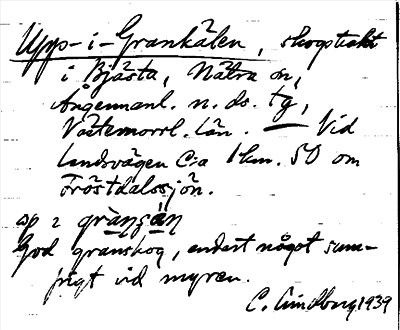 Upp-i-Grankälen, skogstrakt
i Bjästa, Nätra sn,
Ångermanl. n. ds. tg,
Västernorrl. län. — Vid
landsvägen c:a 1 km. SO om
Fröstdalssjön.
god granskog, endast något sum-
pigt vid myren.
C. Lindberg 1939